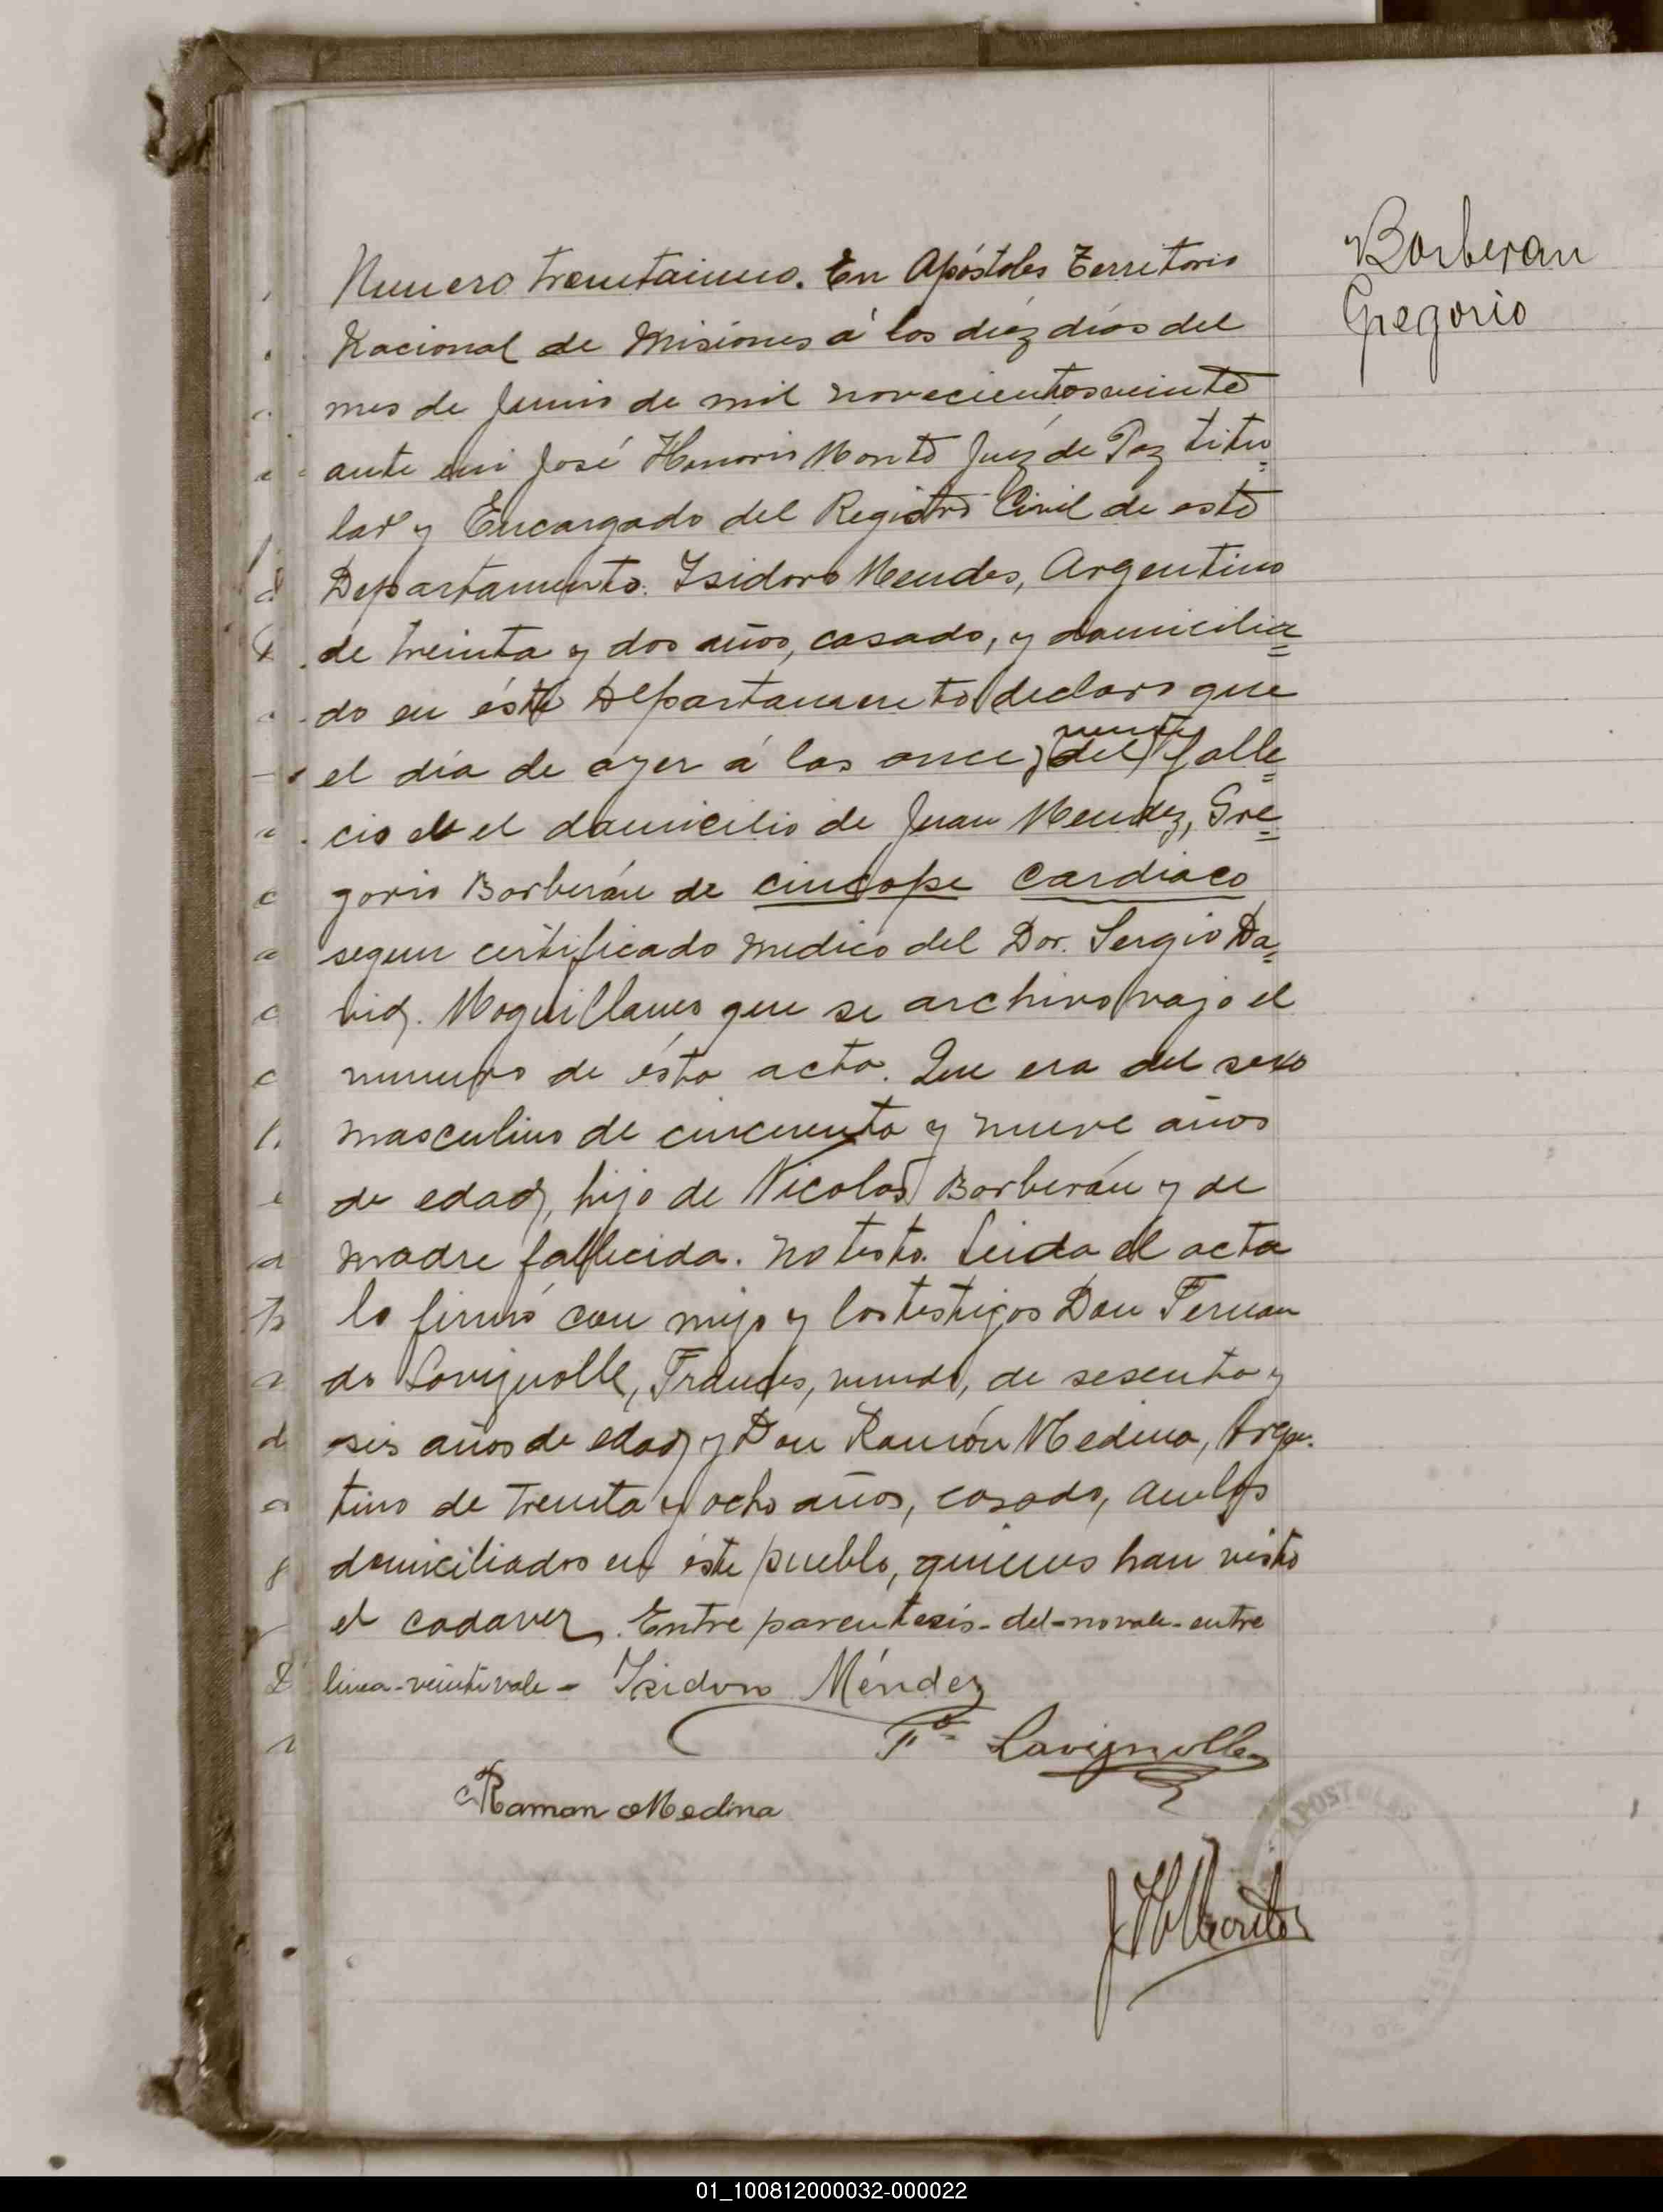 Borberan
Gregorio
Numero treintaiuno. En Apóstoles Territorio
Nacional de Misiones á los diéz dias del
mes de Junio de mil novecientosveinte
ante mi José Honorio Monto Juéz de Paz titu=
lar y Encargado del Registro Civil de este
Departamento. Isidoro Mendes, Argentino
de treinta y dos años, casado, y domicilia=
do en éste Departamento declaro que
el dia de ayer á las once y (del) veinte falle=
cio en el domicilio de Juan Mendez, Gre=
gorio Borberán de cincope cardiaco
segun certificado medico del Dor. Sergio Da=
vid. Moquillanes que se archivo vajo el
numero de ésta acta. Que era del sexo
masculino de cincuenta y nueve años
de edad, hijo de Nicolas Borberán y de
madre fallecida. No testo. Leida el acta
la firmó con migo y los testigos Don Fernan
do Lavignolle, Frances, viudo, de sesenta y
seis años de edad y Don Ramón Medina, Argen.
tino de treinta y ocho años, casado, ambos
domiciliados en éste pueblo, quienes han visto
el cadaver. Entre parentesis-del-no vale-entre
linea-veinte vale- Isidoro Méndez
Fdo Lavignolle
Ramon Medina
JHMonto
APOSTOLES
01_100812000032-000022